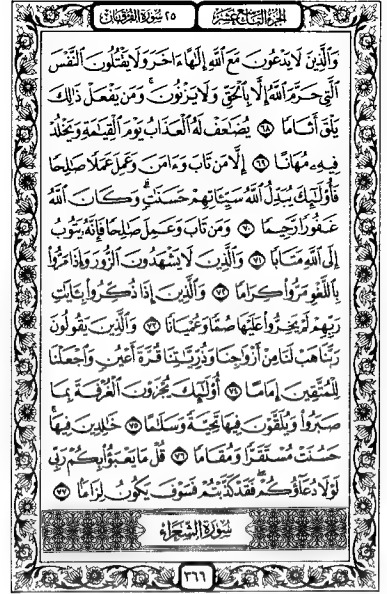 الجزء التاسع عشر ٢٥ سورة الفرقان
وَٱلَّذِينَ لَا يَدْعُونَ مَعَ ٱللَّهِ إِلَٰهًا ءَاخَرَ وَلَا يَقْتُلُونَ ٱلنَّفْسَ
ٱلَّتِي حَرَّمَ ٱللَّهُ إِلَّا بِٱلْحَقِّ وَلَا يَزْنُونَ ۚ وَمَن يَفْعَلْ ذَٰلِكَ
يَلْقَ أَثَامًا ٦٨ يُضَٰعَفْ لَهُ ٱلْعَذَابُ يَوْمَ ٱلْقِيَٰمَةِ وَيَخْلُدْ
فِيهِۦ مُهَانًا ٦٩ إِلَّا مَن تَابَ وَءَامَنَ وَعَمِلَ عَمَلًا صَٰلِحًا
فَأُو۟لَٰٓئِكَ يُبَدِّلُ ٱللَّهُ سَيِّـَٔاتِهِمْ حَسَنَٰتٍ ۗ وَكَانَ ٱللَّهُ
غَفُورًا رَّحِيمًا ٧٠ وَمَن تَابَ وَعَمِلَ صَٰلِحًا فَإِنَّهُۥ يَتُوبُ
إِلَى ٱللَّهِ مَتَابًا ٧١ وَٱلَّذِينَ لَا يَشْهَدُونَ ٱلزُّورَ وَإِذَا مَرُّوا۟
بِٱللَّغْوِ مَرُّوا۟ كِرَامًا ٧٢ وَٱلَّذِينَ إِذَا ذُكِّرُوا۟ بِـَٔايَٰتِ
رَبِّهِمْ لَمْ يَخِرُّوا۟ عَلَيْهَا صُمًّا وَعُمْيَانًا ٧٣ وَٱلَّذِينَ يَقُولُونَ
رَبَّنَا هَبْ لَنَا مِنْ أَزْوَٰجِنَا وَذُرِّيَّٰتِنَا قُرَّةَ أَعْيُنٍ وَٱجْعَلْنَا
لِلْمُتَّقِينَ إِمَامًا ٧٤ أُو۟لَٰٓئِكَ يُجْزَوْنَ ٱلْغُرْفَةَ بِمَا
صَبَرُوا۟ وَيُلَقَّوْنَ فِيهَا تَحِيَّةً وَسَلَٰمًا ٧٥ خَٰلِدِينَ فِيهَا ۚ
حَسُنَتْ مُسْتَقَرًّا وَمُقَامًا ٧٦ قُلْ مَا يَعْبَؤُا۟ بِكُمْ رَبِّي
لَوْلَا دُعَآؤُكُمْ ۖ فَقَدْ كَذَّبْتُمْ فَسَوْفَ يَكُونُ لِزَامًا ٧٧
سُورَةُ الشُّعَرَاءِ
٣٦٦